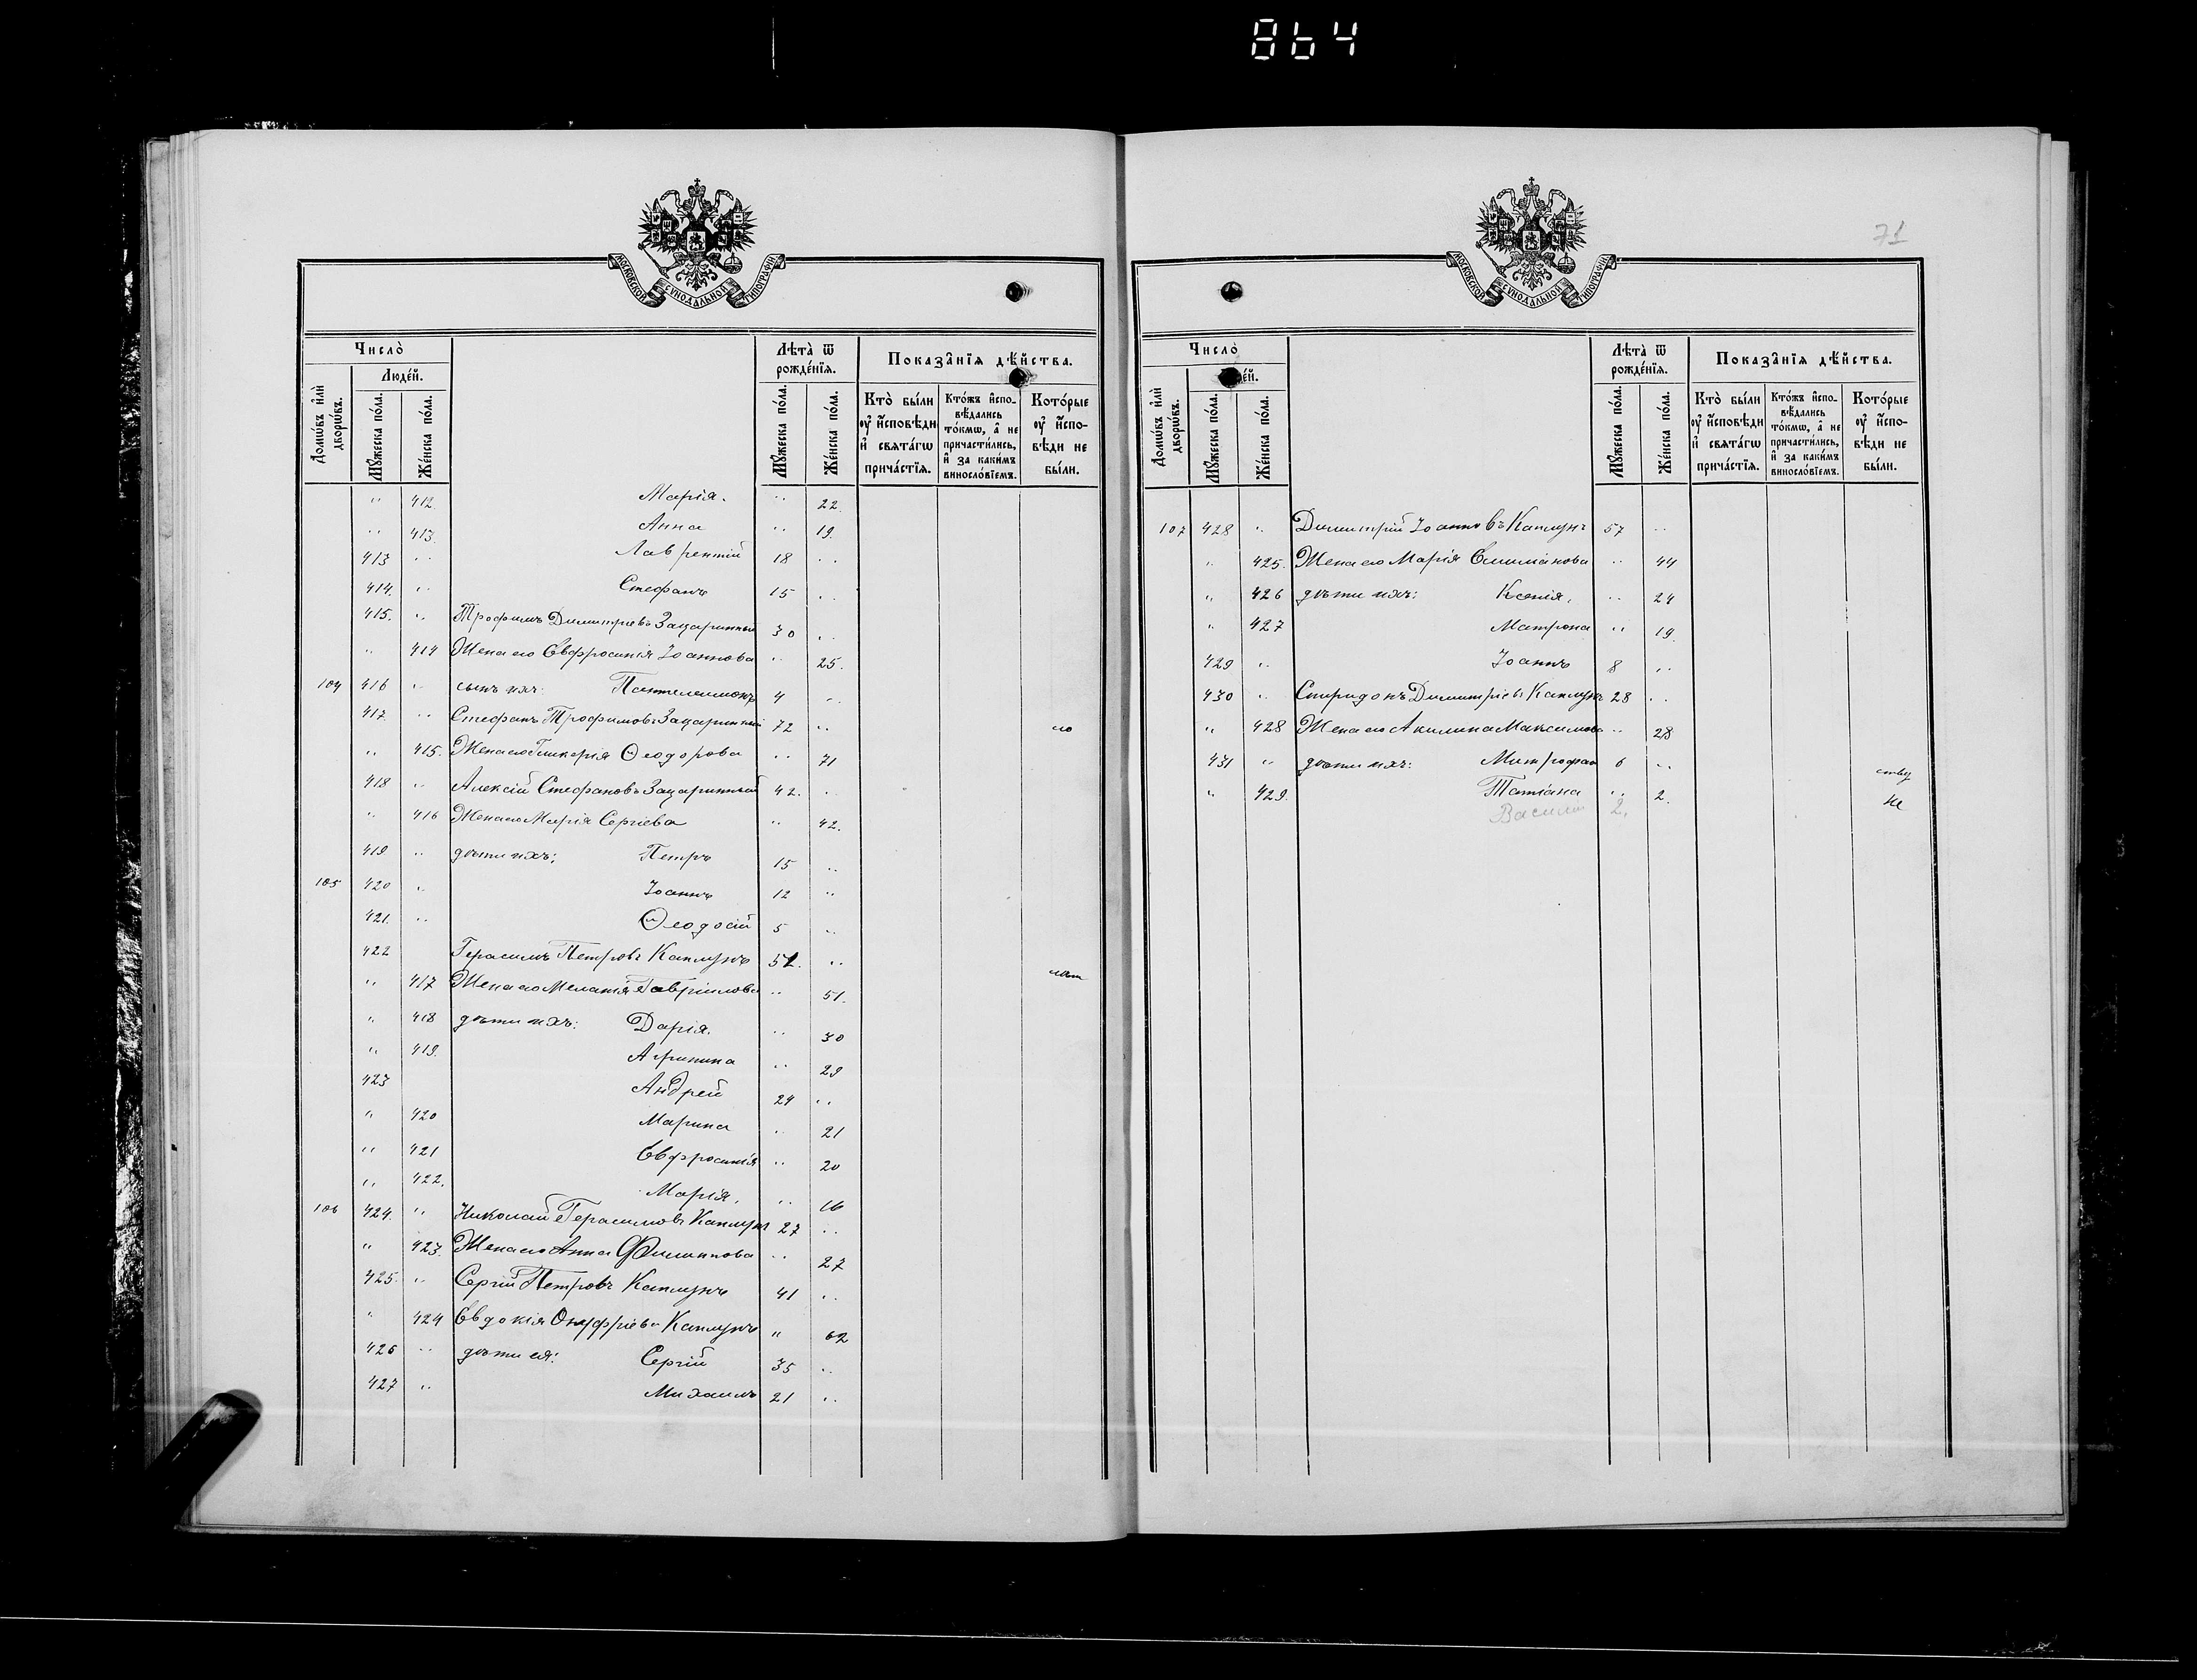 864
МОСКОВСКОЙ СѴНОДАЛЬНОЙ ТИПОГРАФІИ
Число̀
Людéй.
Лѣта̀ ѿ рождéнїѧ.
Показа̑нїѧ дѣ́йства.
Домѡ́въ и҆лѝ дворѡ́въ.
Мꙋ́жеска по́ла.
Же́нска по́ла.
Мꙋ́жеска по́ла.
Же́нска по́ла.
Кто̀ бы́ли ᲂу҆ и҆́сповѣди и҆ свѧта́гѡ прича́стїѧ.
Кто́жъ и҆спо-вѣ́дались то́кмѡ, а҆ не причасти́лись, и҆ за каки́мъ винослові́емъ.
Кото́рые ᲂу҆ и҆́спо-вѣди не бы́ли.
" 412. Марія. " 22.
" 413. Анна " 19.
413 " Лаврентій 18 "
414. " Стефанъ 15 "
415. " Трофимъ Димитріевъ Зацаринный 30 "
" 414 Жена его Евфросинія Іоаннова " 25.
104 416 " сынъ ихъ: Пантелеимонъ 4 "
417. " Стефанъ Трофимовъ Зацаринный 72 "
" 415. Жена его Гликерія Ѳеодорова " 71
418 " Алексій Стефановъ Зацаринный 42. "
" 416 Жена его Марія Сергіева " 42.
419. " дѣти ихъ: Петръ 15 "
105 420 " Іоаннъ 12 "
421. " Ѳеодосій 5 "
422 Герасимъ Петровъ Каплунъ 52. "
" 417 Жена его Меланія Гавріилова " 51.
" 418 дѣти ихъ: Дарія. " 30
" 419. Агрипина " 29
423 Андрей 24 "
" 420 Марина " 21
" 421 Евфросинія " 20
" 422. Марія. " 16
106 424. " Николай Герасимовъ Каплунъ 27 "
" 423. Жена его Анна Филиппова " 27
425. " Сергій Петровъ Каплунъ 41 "
" 424 Евдокія Онуфріева Каплунъ " 62
426 " дѣти ея: Сергій 35 "
427 " Михаилъ 21 "
71
МОСКОВСКОЙ СѴНОДАЛЬНОЙ ТИПОГРАФІИ
Число̀
Лѣта̀ ѿ рождéнїѧ.
Показа̑нїѧ дѣ́йства.
Домѡ́въ и҆лѝ дворѡ́въ.
Мꙋ́жеска по́ла.
Же́нска по́ла.
Мꙋ́жеска по́ла.
Же́нска по́ла.
Кто̀ бы́ли ᲂу҆ и҆́сповѣди и҆ свѧта́гѡ прича́стїѧ.
Кто́жъ и҆спо-вѣ́дались то́кмѡ, а҆ не причасти́лись, и҆ за каки́мъ винослові́емъ.
Кото́рые ᲂу҆ и҆́спо-вѣди не бы́ли.
107 428 " Димитрій Іоанновъ Каплунъ 57 "
" 425. Жена его Марія " 44
" 426 дѣти ихъ: Ксенія. " 24
" 427 Матрона " 19.
429 " Іоаннъ 8 "
430 " Спиридонъ Димитріевъ Каплунъ 28 "
" 428 Жена его Акилина Максимова " 28
431 " дѣти ихъ: Митрофан 6 "
" 429. Татіана " 2.
Василій 2.